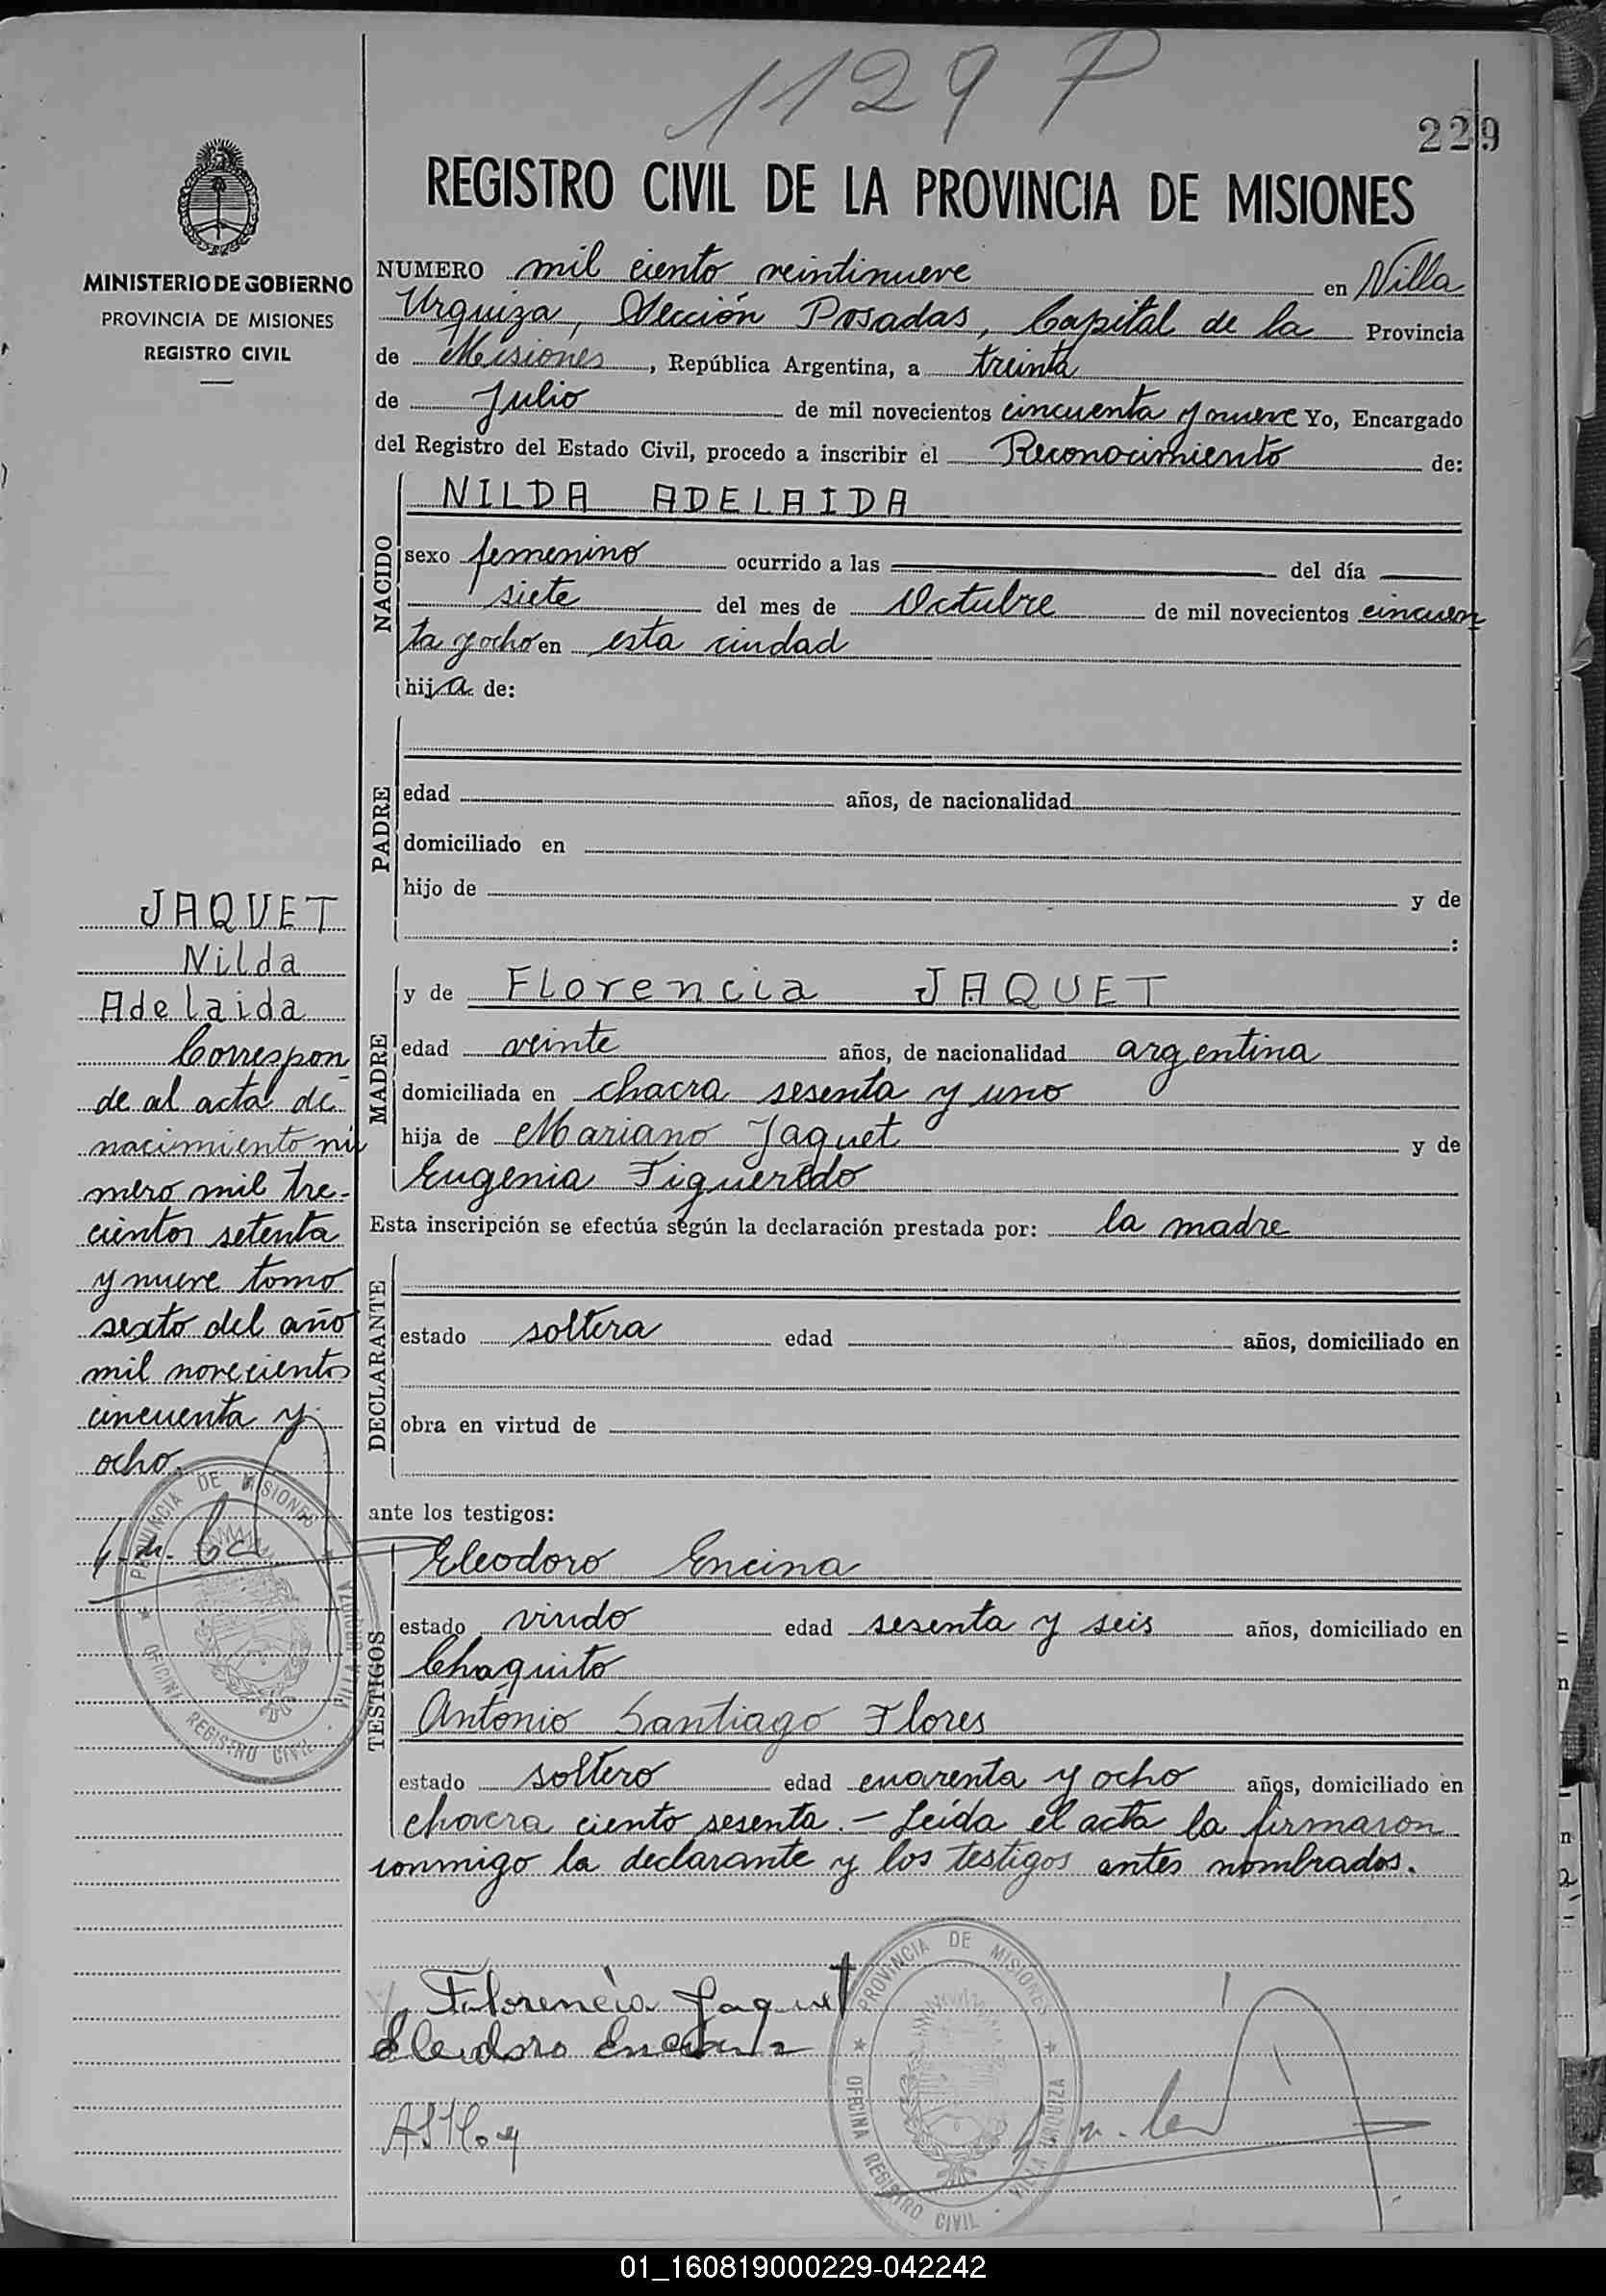 1129 P
229
REGISTRO CIVIL DE LA PROVINCIA DE MISIONES
MINISTERIO DE GOBIERNO
PROVINCIA DE MISIONES
REGISTRO CIVIL
NUMERO mil ciento veintinueve en Villa
Urquiza, Sección Posadas, Capital de la Provincia
de Misiones, República Argentina, a treinta
de Julio de mil novecientos cincuenta y nueve Yo, Encargado
del Registro del Estado Civil, procedo a inscribir el Reconocimiento de:
NACIDO
NILDA ADELAIDA
sexo femenino ocurrido a las del día
siete del mes de Octubre de mil novecientos cincuen
ta y ocho en esta ciudad
hija de:
PADRE
edad años, de nacionalidad
domiciliado en
hijo de y de
:
JAQUET
Nilda
Adelaida
Correspon
de al acta de
nacimiento nú
mero mil tre-
cientos setenta
y nueve tomo
sexto del año
mil novecientos
cincuenta y
ocho.
MADRE
y de Florencia JAQUET
edad veinte años, de nacionalidad argentina
domiciliada en chacra sesenta y uno
hija de Mariano Jaquet y de
Eugenia Figueredo
Esta inscripción se efectúa según la declaración prestada por: la madre
DECLARANTE
estado soltera edad años, domiciliado en
obra en virtud de
ante los testigos:
TESTIGOS
Eleodoro Encina
estado viudo edad sesenta y seis años, domiciliado en
Chaquito
Antonio Santiago Flores
estado soltero edad cuarenta y ocho años, domiciliado en
chacra ciento sesenta.- Leída el acta la firmaron
conmigo la declarante y los testigos antes nombrados.
PROVINCIA DE MISIONES
OFICINA REGISTRO CIVIL
VILLA URQUIZA
Florencia Jaquet
Eleodoro Encina
PROVINCIA DE MISIONES
OFICINA REGISTRO CIVIL
VILLA URQUIZA
01_160819000229-042242